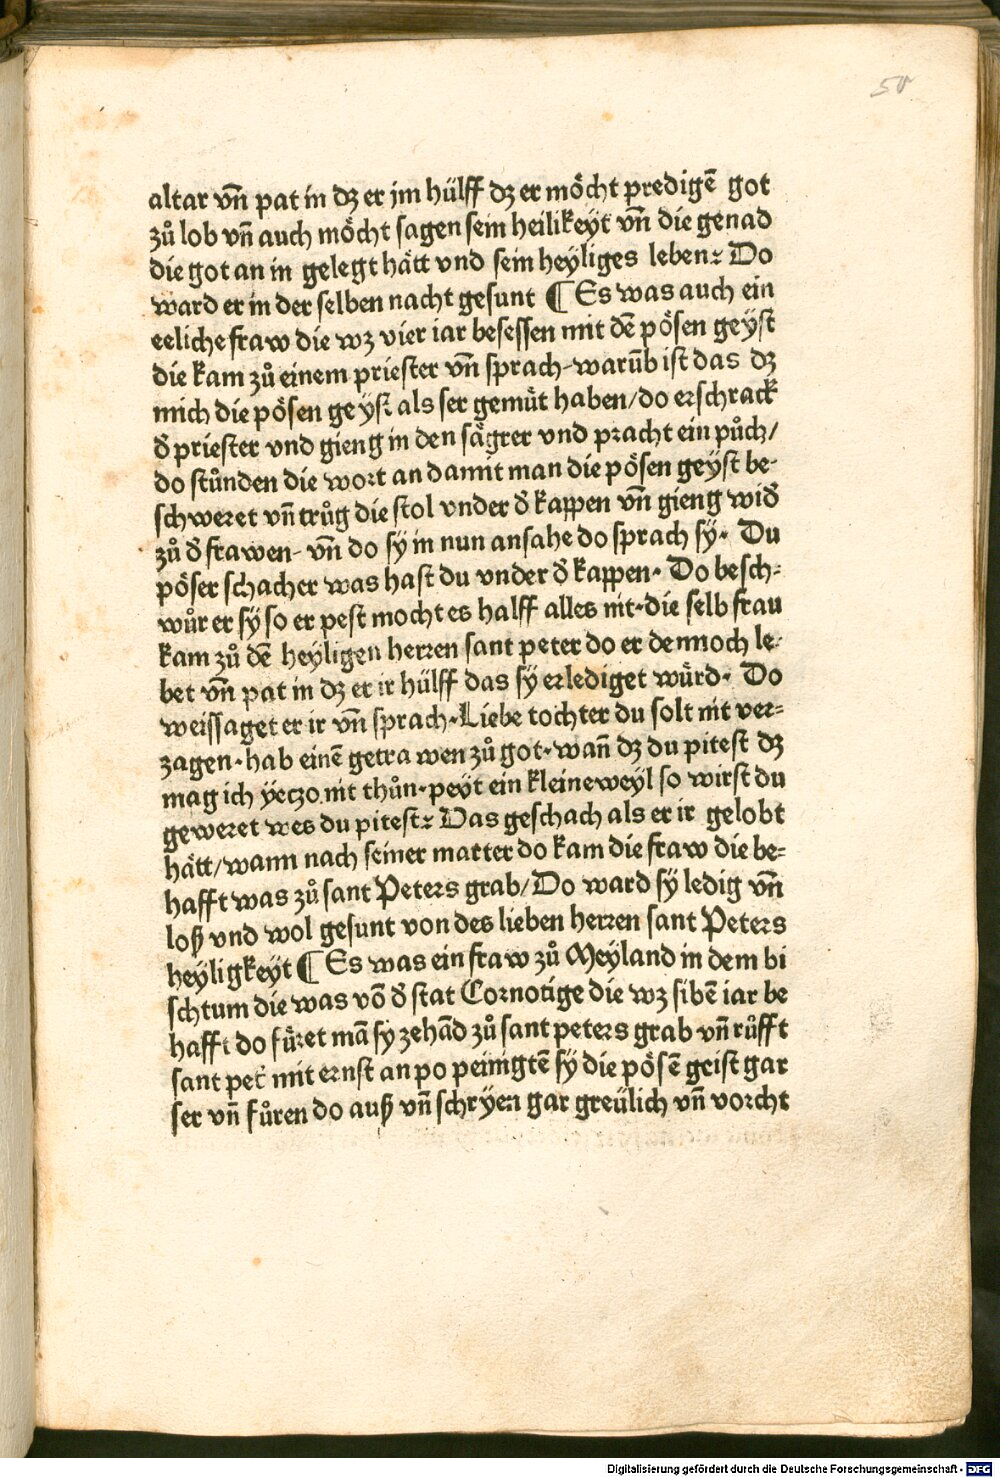 50
altar vn̄ pat in dʒ er jm hülff dʒ er möcht predigē got
zů lob vn̄ auch möcht sagen sein heilikeyt vn̄ die genad
die got an in gelegt hätt vnd sein heyliges leben⁊ Do
ward er in der selben nacht gesunt ¶ Es was auch ein
eeliche fraw die wʒ vier iar besessen mit dē pösen geyst
die kam zů einem priester vn̄ sprach-warūb ist das dʒ
mich die pösen geyst als ser gemüt haben/do erschrack
d̕ priester vnd gieng in den sägrer vnd pracht ein půch/
do stůnden die wort an damit man die pösen geyst be-
schweret vn̄ trůg die stol vnder d̕ kappen vn̄ gieng wid̕
zů d̕ frawen- vn̄ do sy in nun ansahe do sprach sy· Du
pöser schacher was hast du vnder d̕ kappen· Do besch-
wůr er sy so er pest mocht es halff alles nit·die selb frau
kam zů dē heyligen herren sant peter do er dennoch le-
bet vn̄ pat in dʒ er ir hülff das sy erlediget würd· Do
weissaget er ir vn̄ sprach·Liebe tochter du solt nit ver-
zagen·hab einē getrawen zů got·wan̄ dʒ du pitest dʒ
mag ich yeczo nit thůn·peyt ein kleine weyl so wirst du
geweret wes du pitest⁊ Das geschach als er ir gelobt
hätt/wann nach seiner matter do kam die fraw die be-
hafft was zů sant Peters grab/Do ward sy ledig vn̄
loß vnd wol gesunt von des lieben herren sant Peters
heyligkeyt ¶ Es was ein fraw zů Meyland in dem bi
schtum die was vō d̕ stat Cornotige die wʒ sibē iar be
hafft do füret mā sy zehād zů sant peters grab vn̄ růfft
sant pet̕ mit ernst an po peinigtē sy die pösē geist gar
ser vn̄ fůren do auß vn̄ schryen gar greülich vn̄ vorcht
Digitalisierung gefördert durch die Deutsche Forschungsgemeinschaft - DFG